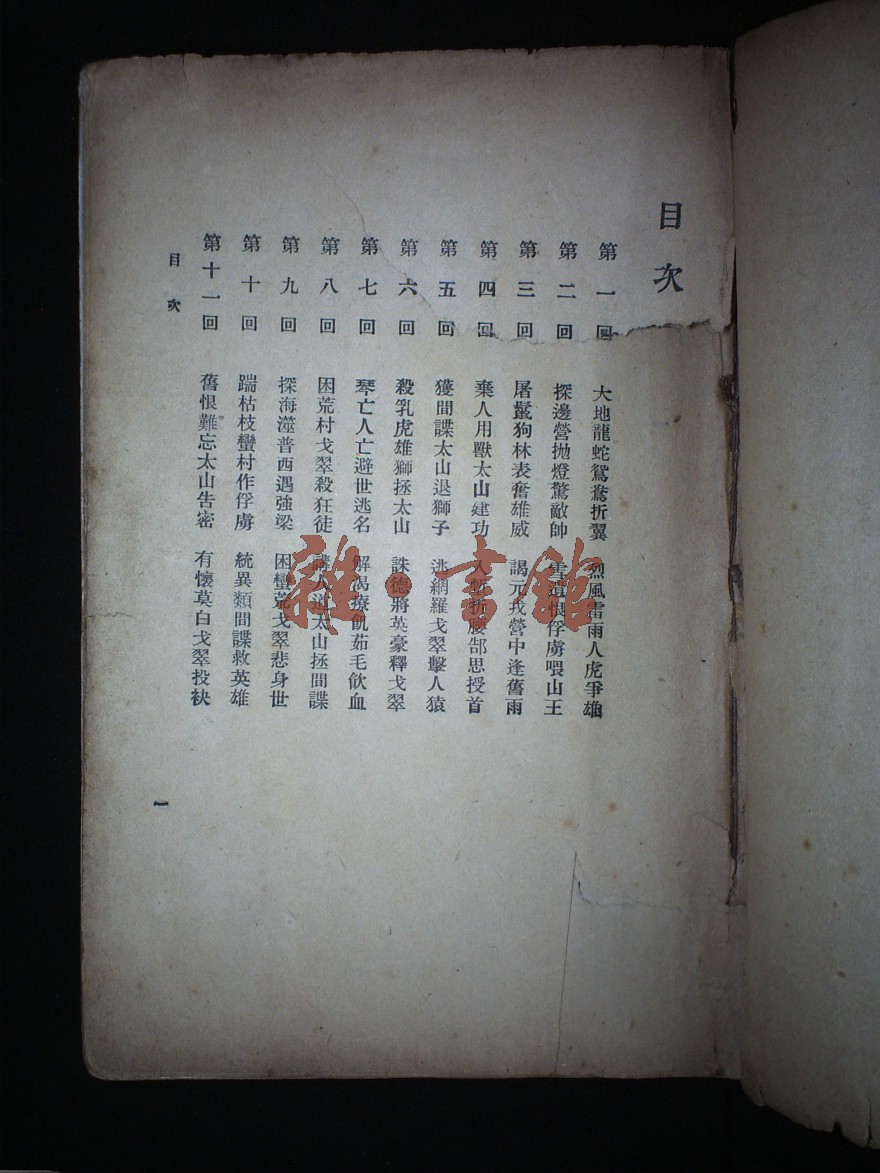 目次
第一回 大地龍蛇鴛鴦折翼 烈風雷雨人虎爭雄
第二回 探邊營拋燈驚敵帥 雪遺恨俘虜喂山王
第三回 屠鬣狗林表奮雄威 謁元戎營中逢舊雨
第四回 棄人用獸太山建功 入塹折腰郜思授首
第五回 獲間諜太山退獅子 逃網羅戈翠擊人猿
第六回 殺乳虎雄獅拯太山 誅德將英豪釋戈翠
第七回 琴亡人亡避世逃名 解渴療飢茹毛飲血
第八回 困荒村戈翠殺狂徒 講人道太山拯間諜
第九回 探海澨普西遇強梁 困蠻荒戈翠悲身世
第十回 踹枯枝蠻村作俘虜 統異類間諜救英雄
第十一回 舊恨難忘太山吿密 有懷莫白戈翠投袂
目次
一
雜·書館